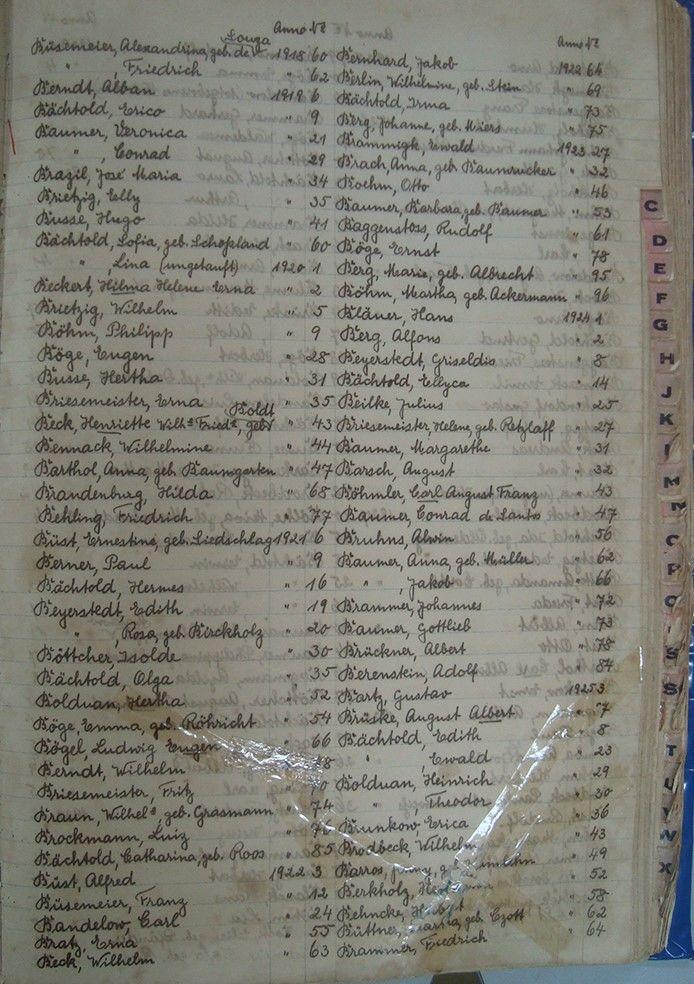 Anno № 
Büsemeier, Alexandrina, geb. de Souza 1918 60
" , Friedrich " 62
Berndt, Alban 1919 6
Bächtold, Erico " 9
Baumer, Veronica " 21
" , Conrad " 29
Brazil, José Maria " 34
Brietzig, Elly " 35
Busse, Hugo " 41
Bächtold, Sofia, geb. " 60
" , Lina (ungetauft) 1920 1
Beckert, Hilma Helene Erna " 2
Brietzig, Wilhelm " 5
Böhm, Philipp " 9
Böge, Eugen " 28
Busse, Hertha " 31
Briesemeister, Erna " 35
Beck, Henriette Wilhᵉ Friedᵃ, geb. Boldt " 43
Bennack, Wilhelmine " 44
Barthol, Anna, geb. Baumgarten " 47
Brandenburg, Hilda " 68
Behling, Friedrich " 77
Büst, Ernestine, geb. Liedschlag 1921 6
Berner, Paul " 9
Bächtold, Hermes " 16
Beyerstedt, Edith " 19
" , Rosa, geb. Birckholz " 20
Böttcher, Isolde " 30
Bächtold, Olga " 35
Bolduan, Hertha " 52
Böge, Emma, geb. Röhricht " 54
Bögel, Ludwig Eugen " 66
Berndt, Wilhelm
Briesemeister, Fritz
Braun, Wilhelᵉ geb. Grasmann " 74
Brockmann, Luiz " 76
Bächtold, Catharina, geb. Roos " 85
Büst, Alfred 1922 3
Büsemeier, Franz " 12
Bandelow, Carl " 24
Bratz, Erna " 55
Beck, Wilhelm " 63
Anno №
Bernhard, Jakob 1922 64
Berlin, Wilhelmine, geb. Stein " 69
Bächtold, Irma " 73
Berg, Johanne, geb. " 75
Brammigk, Ewald 1923 27
Brach, Anna, geb. Baumrucker " 32
Boehm, Otto " 46
Baumer, Barbara, geb. Baumer " 53
Baggenstoss, Rudolf " 61
Böge, Ernst " 78
Berg, Marie, geb. Albrecht " 95
Böhm, Martha, geb. Ackermann " 96
Bläuer, Hans 1924 1
Berg, Alfons " 2
Beyerstedt, Griseldis " 8
Bächtold, Ellyca " 14
Beilke, Julius " 25
Briesemeister, Helene, geb. Retzlaff " 27
Baumer, Margarethe " 31
Barsch, August " 32
Böhmler, Carl August Franz " 43
Baumer, Conrad de Santos " 47
Bruhns, Alwin " 56
Baumer, Anna, geb. Müller " 62
" , Jakob " 66
Brammer, Johannes " 72
Baumer, Gottlieb " 73
Brückner, Albert " 78
Berenstein, Adolf " 84
Bartz, Gustav 1925 3
Brüske, August Albert " 7
Bächtold, Edith " 8
" Ewald " 23
Bolduan, Heinrich " 29
" , Theodor " 30
Brunkow, Erica " 36
Brodbeck, Wilhelm " 43
Barros, " 49
Berkholz, " 52
Behncke, " 58
Büttner, Martha, geb. Czott " 62
Brammer, Friedrich " 64
C
D
E
F
G
H
J
K
L
M
N
O
P
Q
S
S
T
U
V
W
X